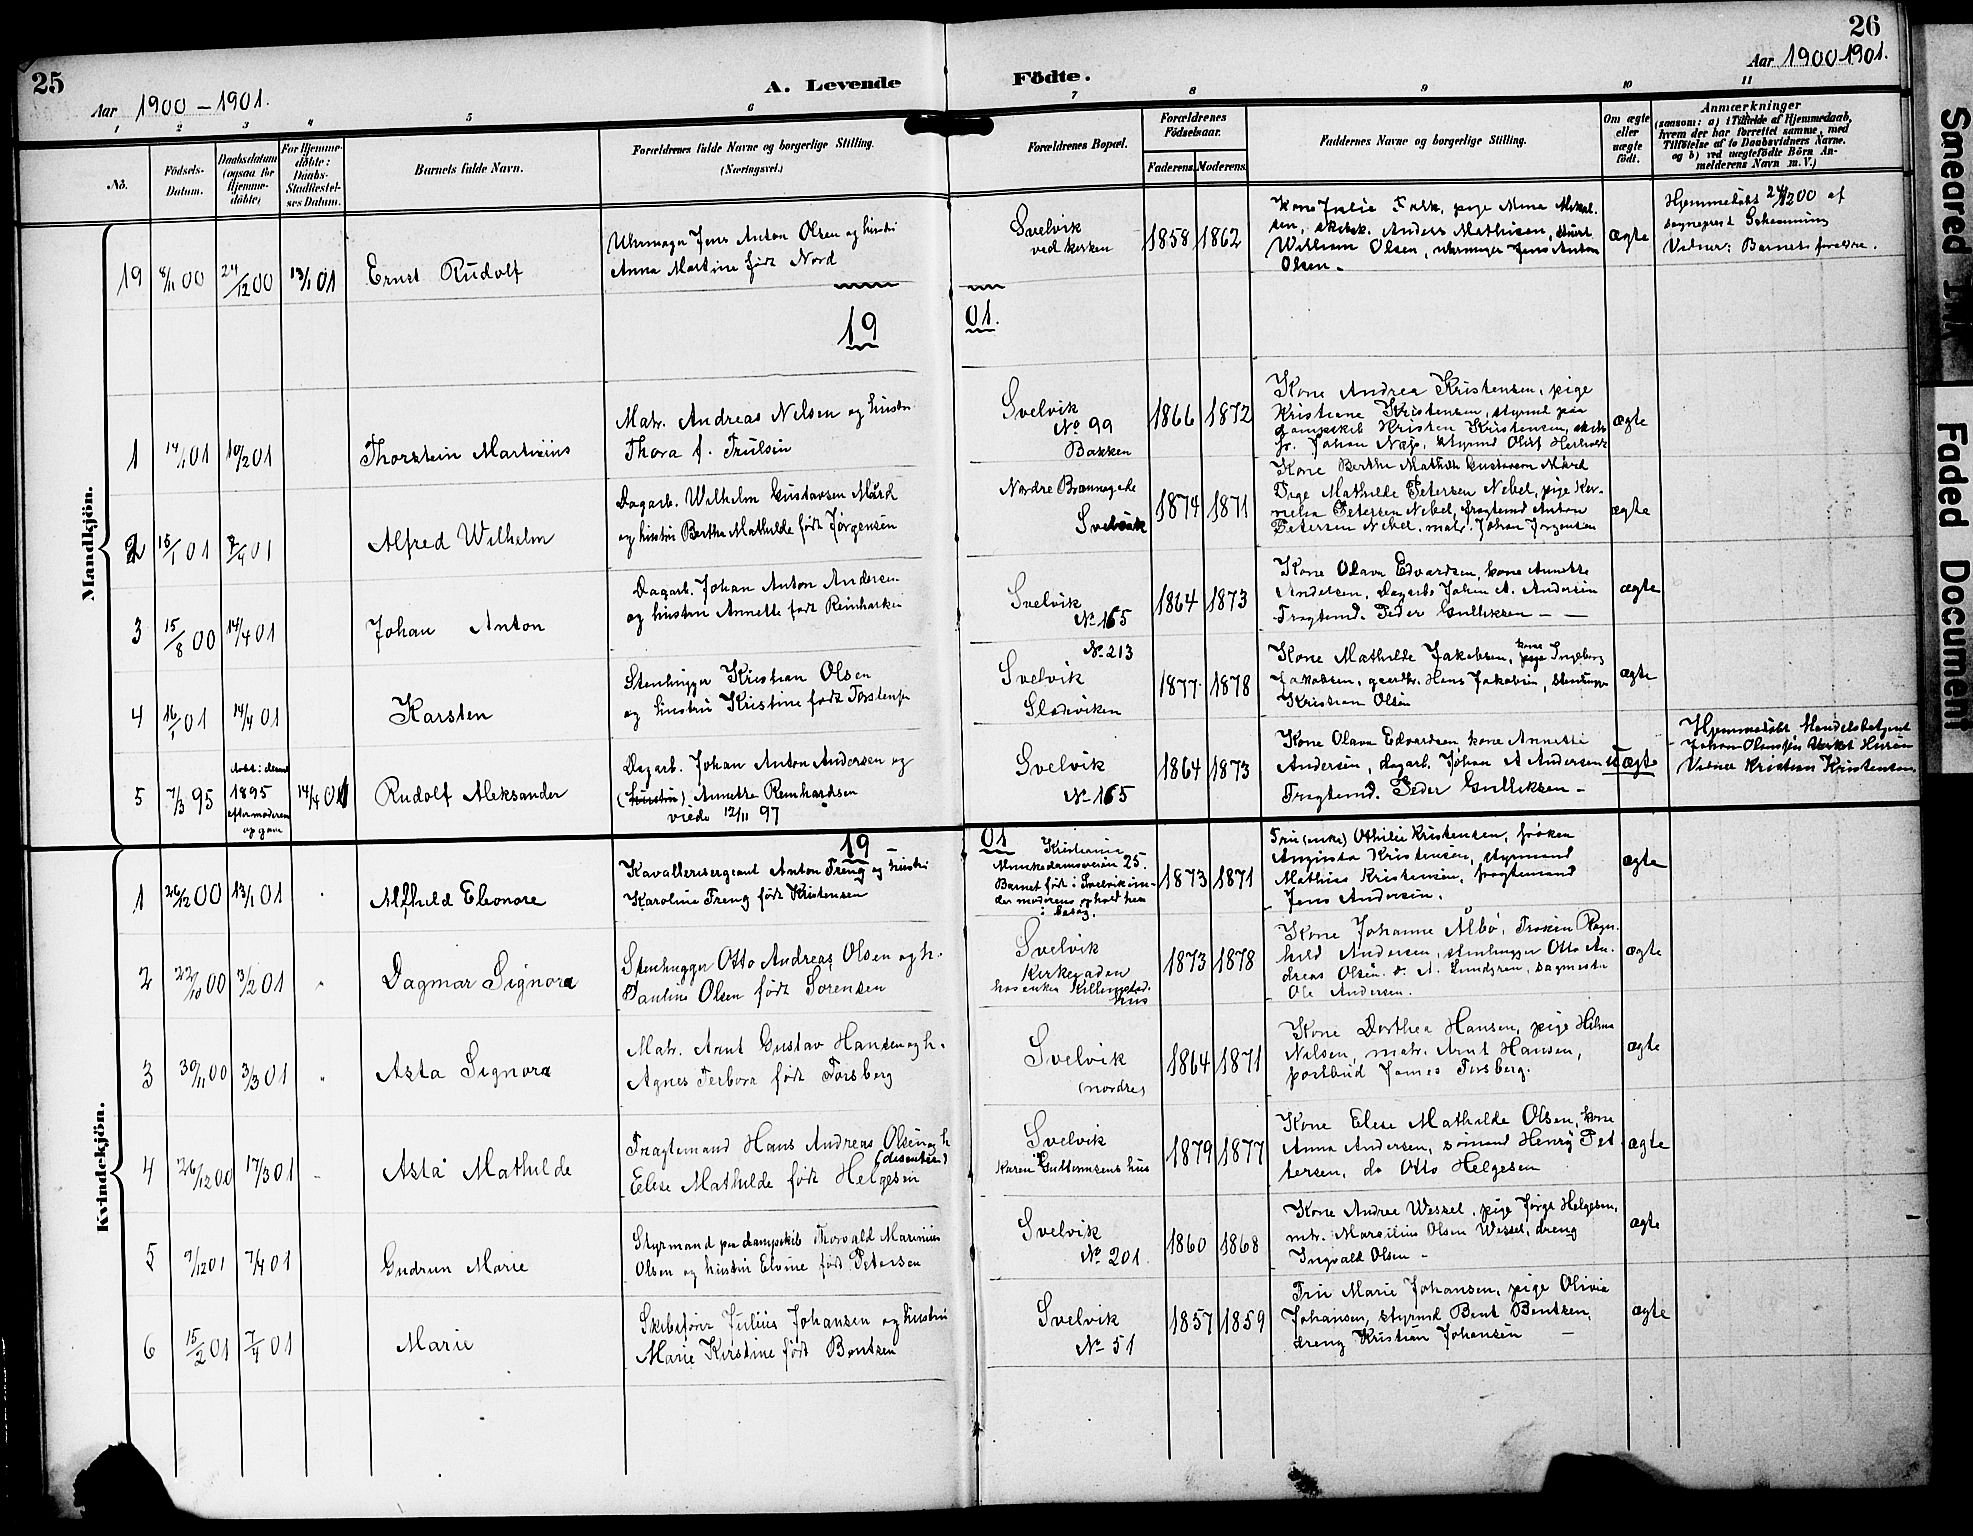 25
26
Aar 1900 – 1901.
A. Levende
Födte.
Aar 1900 1901.
1 2 3 4 5 6 7 8 9 10 11
No.
Födsels-
Datum.
Daabsdatum
(ogsaa for
Hjemme-
döbte)
For Hjemme-
döbte:
Daabs-
Stadfæstel-
ses Datum.
Barnets fulde Navn.
Forældrenes fulde Navne og borgerlige Stilling.
(Næringsvei.)
Forældrenes Bopæl.
Forældrenes
Födselsaar.
Faderens. Moderens.
Faddernes Navne og borgerlige Stilling.
Om ægte
eller
uægte
födt.
Anmærkninger
(saasom: a) i Tilfælde af Hjemmedaab,
hvem der har forrettet samme, med
Tilföielse af to Daabsvidners Navne.
og b) ved uægtefödte Börn An-
melderens Navn m. V.)
Mandkjön.
19 8/11 00 24/12 00 13/1 01 Ernst Rudolf
Uhrmager Jens Anton Olsen og hustru
Anna Martine født Nord
Svelvik
ved kirken
1858 1862
Kone Julie Falk, pige Mina Mikal-
sen, skibsk. Anders Mathisen, stuert
William Olsen, uhrmager Jens Anton
Olsen.
ægte
Hjemmedøbt 24/12 00 af
sogneprest Schanning
Vidner: Barnets forældre.
19 01.
1 14/1 01 10/2 01 Thorstein Martinius
Matr. Andreas Nelsen og hustru
Thora f. Trulsen
Svelvik
No 99
Bakken
1866 1872
Kone Andrea Kristensen, pige
Kristiane Kristensen, styrmd paa
dampskib Kristen Kristensen, skibs
fr. Johan Næss, styrmd Oluf
ægte
2 15/1 01 7/4 01 Alfred Wilhelm
Dagarb. Wilhelm Gustavsen Mård
og hustru Berthe Mathilde født Jørgensen
Nordre Brannegade
Svelvik
1874 1871
Kone Berthe Mathilde Gustavsen Mård
Pige Mathilde Petersen Nebel, pige Kor-
nelia Petersen Nebel, fragtemd Anton
Petersen Nebel, matr. Johan Jørgensen
ægte
3 15/8 00 14/4 01 Johan Anton
Dagarb. Johan Anton Andersen
og hustru Annette født Reinhardsen
Svelvik
No 165
1864 1873
Kone Olava Edvardsen, kone Annette
Andersen, Dagarb. Johan A. Andersen
Fragtemd. Peder Gulliksen –
ægte
4 16/1 01 14/4 01 Karsten
Stenhugger Kristian Olsen
og hustru Kristine født Torstensen
No 213
Svelvik
Slaaviken
1877 1878
Kone Mathilde Jakobsen, kone pige Ingeborg
Jakobsen, gaardbr. Hans Jakobsen, stenhugger
Kristian Olsen
ægte
5 7/3 95 døbt i
1895
efter moderens
opgave
14/4 01 Rudolf Aleksander
Dagarb. Johan Anton Andersen og
(hustru) Annette Reinhardsen
viede 12/11 97
Svelvik
No 165
1864 1873
Kone Olava Edvardsen, kone Annette
Andersen, dagarb. Johan A Andersen
Fragtemd. Peder Gulliksen –
Uægte
Hjemmedøbt, Handelsbetjent
Vidner Kristian Kristensen
Kvindekjön.
19 01
1 26/12 00 13/1 01 Alfhild Eleonore
Kavallerisergeant Anton Treng og hustru
Karoline Treng født Kristensen
Kristiania
Munkedamsveien 25.
Barnet født i Svelvik un-
der moderens ophold her
i besøg.
1873 1871
Fru (enke) Othilie Kristensen, frøken
Augusta Kristensen, styrmand
Mathias Kristensen, fragtemand
Jens Andersen.
ægte
2 22/10 00 3/2 01 Dagmar Signora
Stenhugger Otto Andreas Olsen og h.
Pauline Olsen født Sørensen
Svelvik
Kirkegaden
hos enken Killingstad.
hus
1873 1878
Kone Johanne Ålbø, Frøken Ragn-
hild Andersen, stenhugger Otto An-
dreas Olsen. A. Lundgren, sagmester
Ole Andersen.
ægte
3 30/11 00 3/3 01 Asta Signora
Matr. Arnt Gustav Hansen og h.
Agnes Terbora født Forsberg
Svelvik
(nordre)
1864 1871
Kone Dorthea Hansen, pige Hilma
Nilsen, matr. Arnt Hansen,
postbud James Forsberg.
ægte
4 26/12 00 17/3 01 Asta Mathilde
Fragtemand Hans Andreas Olsen og h
(disenter)
Elise Mathilde født Helgesen
Svelvik
Karen Guttormsens hus
1879 1877
Kone Elise Mathilde Olsen, kone
Anna Andersen, sømand Henry Pet
tersen, do Otto Helgesen
ægte
5 7/12 01 7/4 01 Gudrun Marie
Styrmand paa dampskib Thorvald Marinius
Olsen og hustru Elvine født Petersen
Svelvik
No 201
1860 1868
Kone Andrea Wessel, pige Jørga Helgesen,
mtr. Marsilius Olsen Wessel, dreng
Ingvald Olsen –
ægte
6 15/2 01 7/4 01 Marie
Skibsfører Julius Johansen og hustru
Marie Kirstine født Bentzen
Svelvik
No 51
1857 1859
Fru Marie Johansen, pige Olivia
Johansen, styrmd Bent Bentzen,
dreng Kristian Johansen –
ægte
Smeared Ink
Faded Document